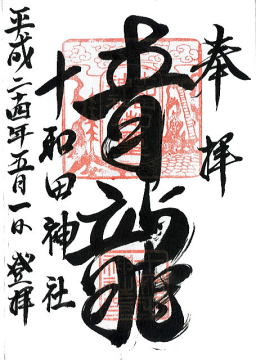 奉拝
青龍
十和田神社
平成二十四年五月一日 登拝